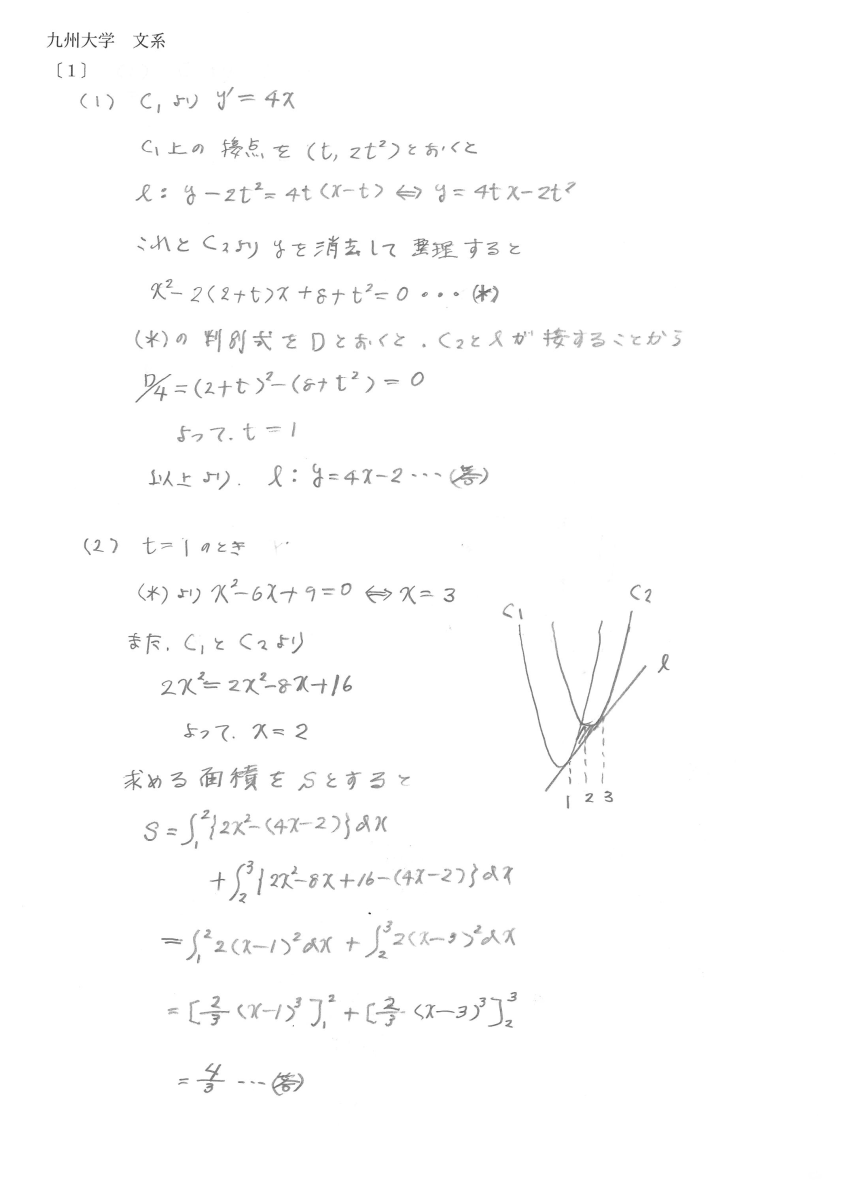 九州大学 文系
〔1〕
(1) C₁より y' = 4x
C₁上の接点を (t, 2t²)とおくと
l: y − 2t² = 4t(x−t) ⇔ y = 4tx−2t²
これと C₂より yを消去して 整理すると
x²−2(2+t)x+8+t²=0 ・・・(*)
(*)の 判別式を Dとおくと, C₂とlが 接することから
D/4=(2+t)²−(8+t²)=0
よって, t=1
以上より, l: y=4x−2 ・・・(答)
(2) t=1のとき
(*)より x²−6x+9=0 ⇔ x=3
また, C₁と C₂より
2x²=2x²−8x+16
よって, x=2
求める 面積を Sとすると
S=∫₁²{2x²−(4x−2)}dx
+∫₂³{2x²−8x+16−(4x−2)}dx
=∫₁²2(x−1)²dx+∫₂³2(x−3)²dx
=[2/3(x−1)³]₁²+[2/3(x−3)³]₂³
=4/3 ・・・(答)
C₁
C₂
l
1 2 3